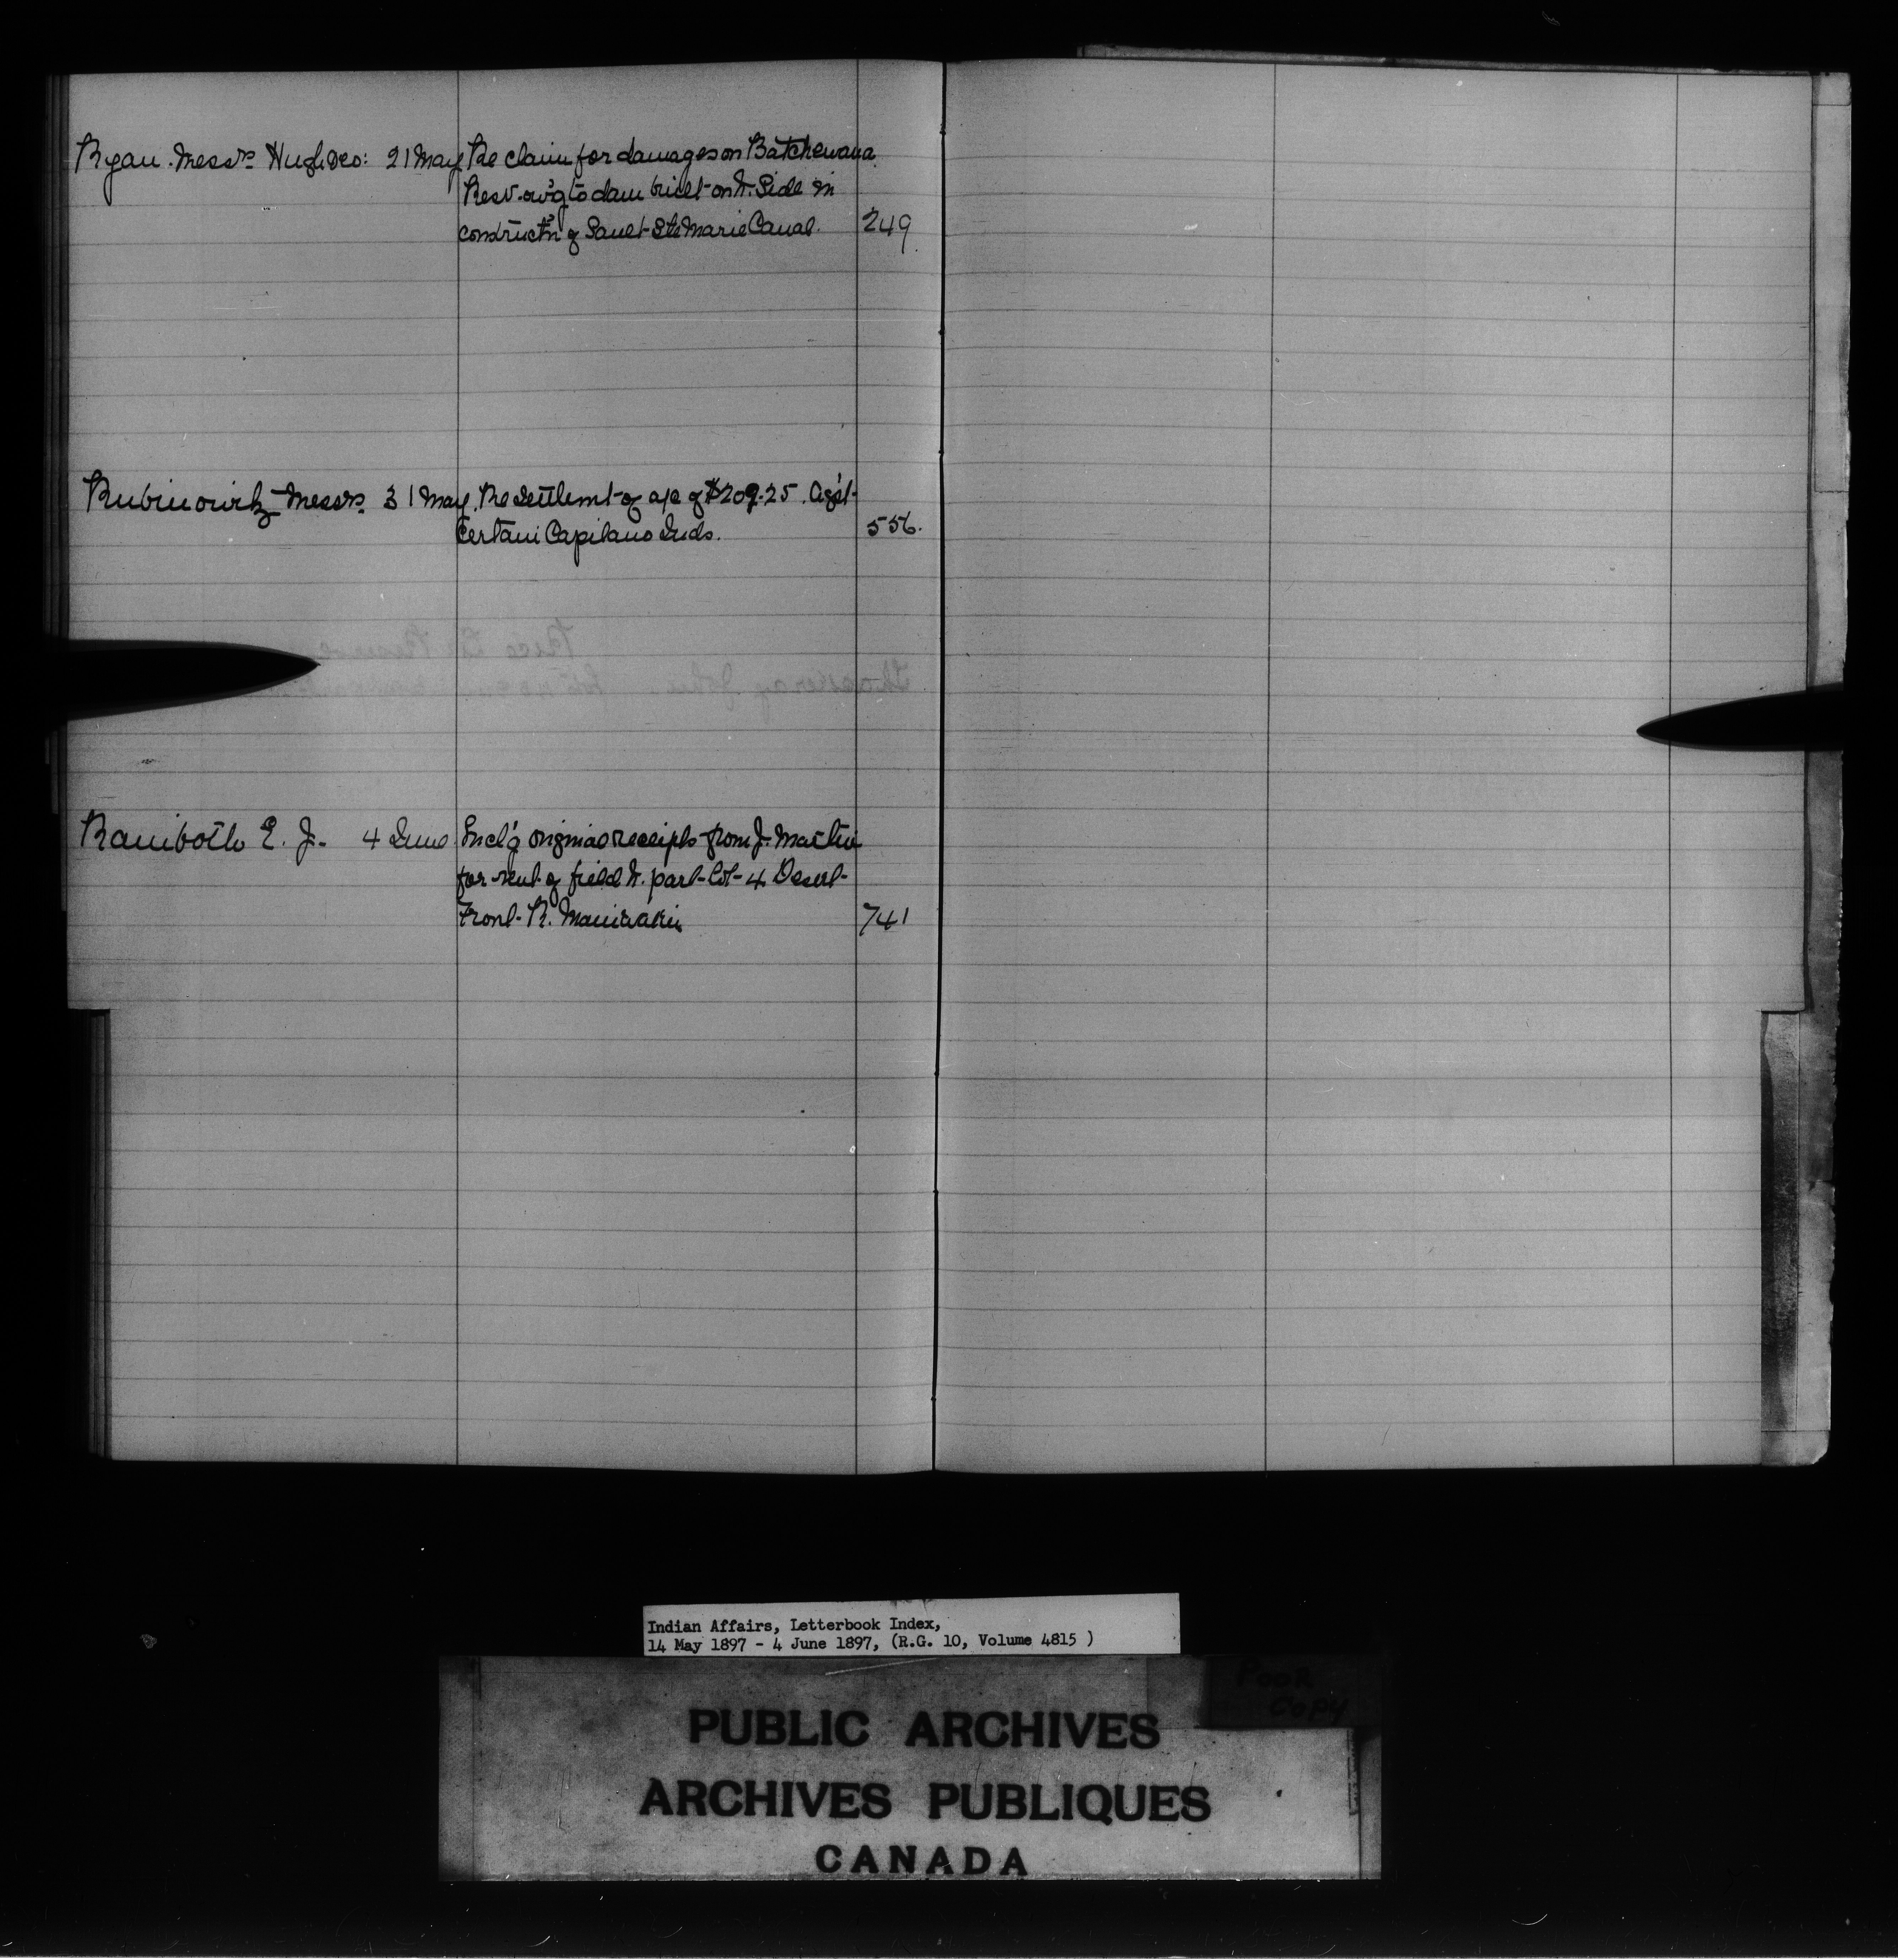 Ryan. Messrs Hugh &co: 21 May Re claim for damages on Batchewana
Resv. ow'g to dam built on N. Side in
constructn of Sault Ste Marie Canal. 249
Rubinowitz Messrs 31 May. Re settlemt of a/c of $209.25. Agst
certain Capilano Inds. 556.
Rainboth E. J. 4 June Incl'g original receipts from J. Martin
for rent of field N. part Lot 4 Desert
Front R. Maniwaki 741
Indian Affairs, Letterbook Index,
14 May 1897 - 4 June 1897, (R.G. 10, Volume 4815 )
POOR
COPY
PUBLIC ARCHIVES
ARCHIVES PUBLIQUES
CANADA